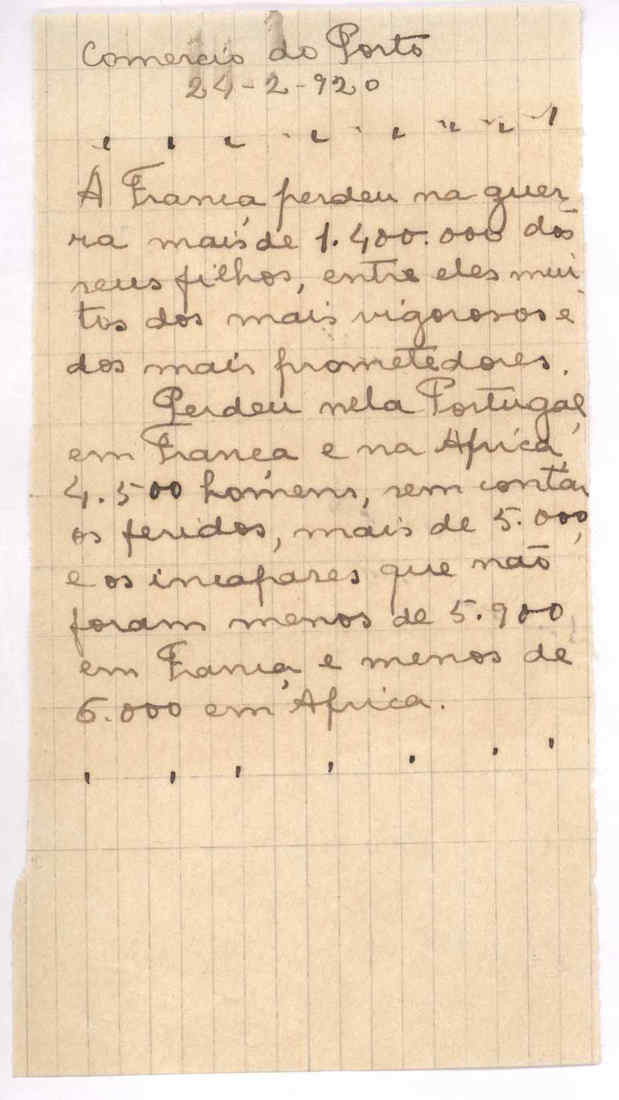 Comercio do Porto
24-2-920
" " " " " " " "
Á França perdeu na guer
ra mais de 1.400.000 dos
seus filhos, entre eles mui
tos dos mais vigorosos e
dos mais prometedores.
Perdeu nela Portugal,
em França e na Africa,
4.500 homens, sem contar
os feridos, mais de 5.000,
e os incapazes que não
foram menos de 5.900
em França e menos de
6.000 em Africa.
' ' ' ' ' ' '